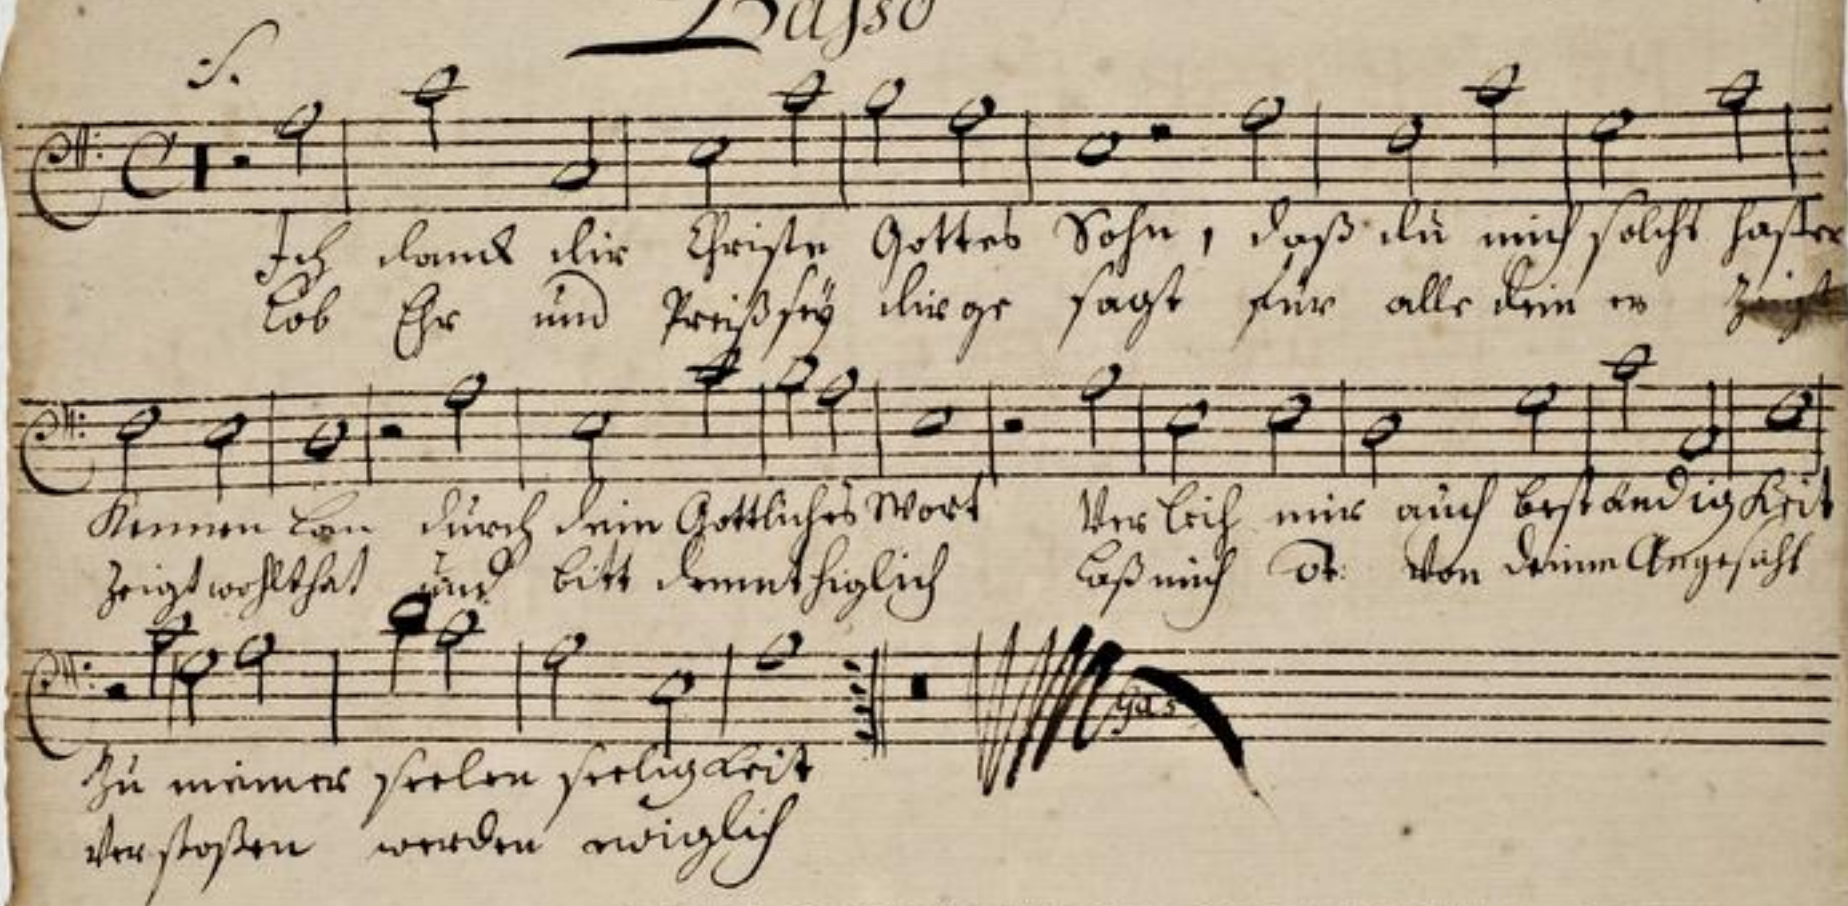 Basso
Ich danck dir Christe Gottes Sohn, daß du mich solchs hast er
Lob Ehr und Preiß sey dir ge sagt für alle dein er zeigt
Kennen lan durch dein Gottliches Wort Ver leih mir auch beständigkeit
zeigt wohlthat und bitt demuthiglich Laß mich von deinem Angesicht
Zu meiner seelen seeligkeit
Verstoßen werden ewiglich